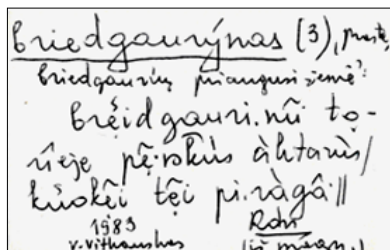 briedgaurýnas (3),
briedgaurių priaugusi žemė:
brẹidgauri.nũ tọ-
rieje pẹ.rkũs àhtarùs/
kũokẽi tẹi pi.ràgâ //
1983
V. Vitkauskas